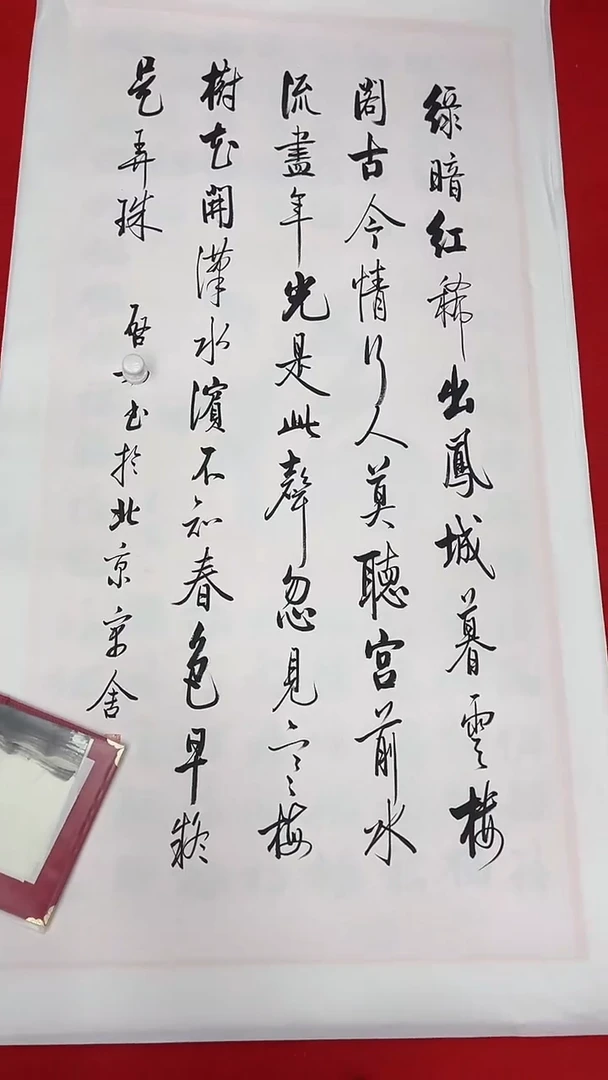 綠暗紅稀出鳳城暮雲樓
閣古今情行人莫聽宮前水
流盡年光是此聲忽見寒梅
樹花開漢水濱不知春色早疑
是弄珠
啓書於北京寓舍